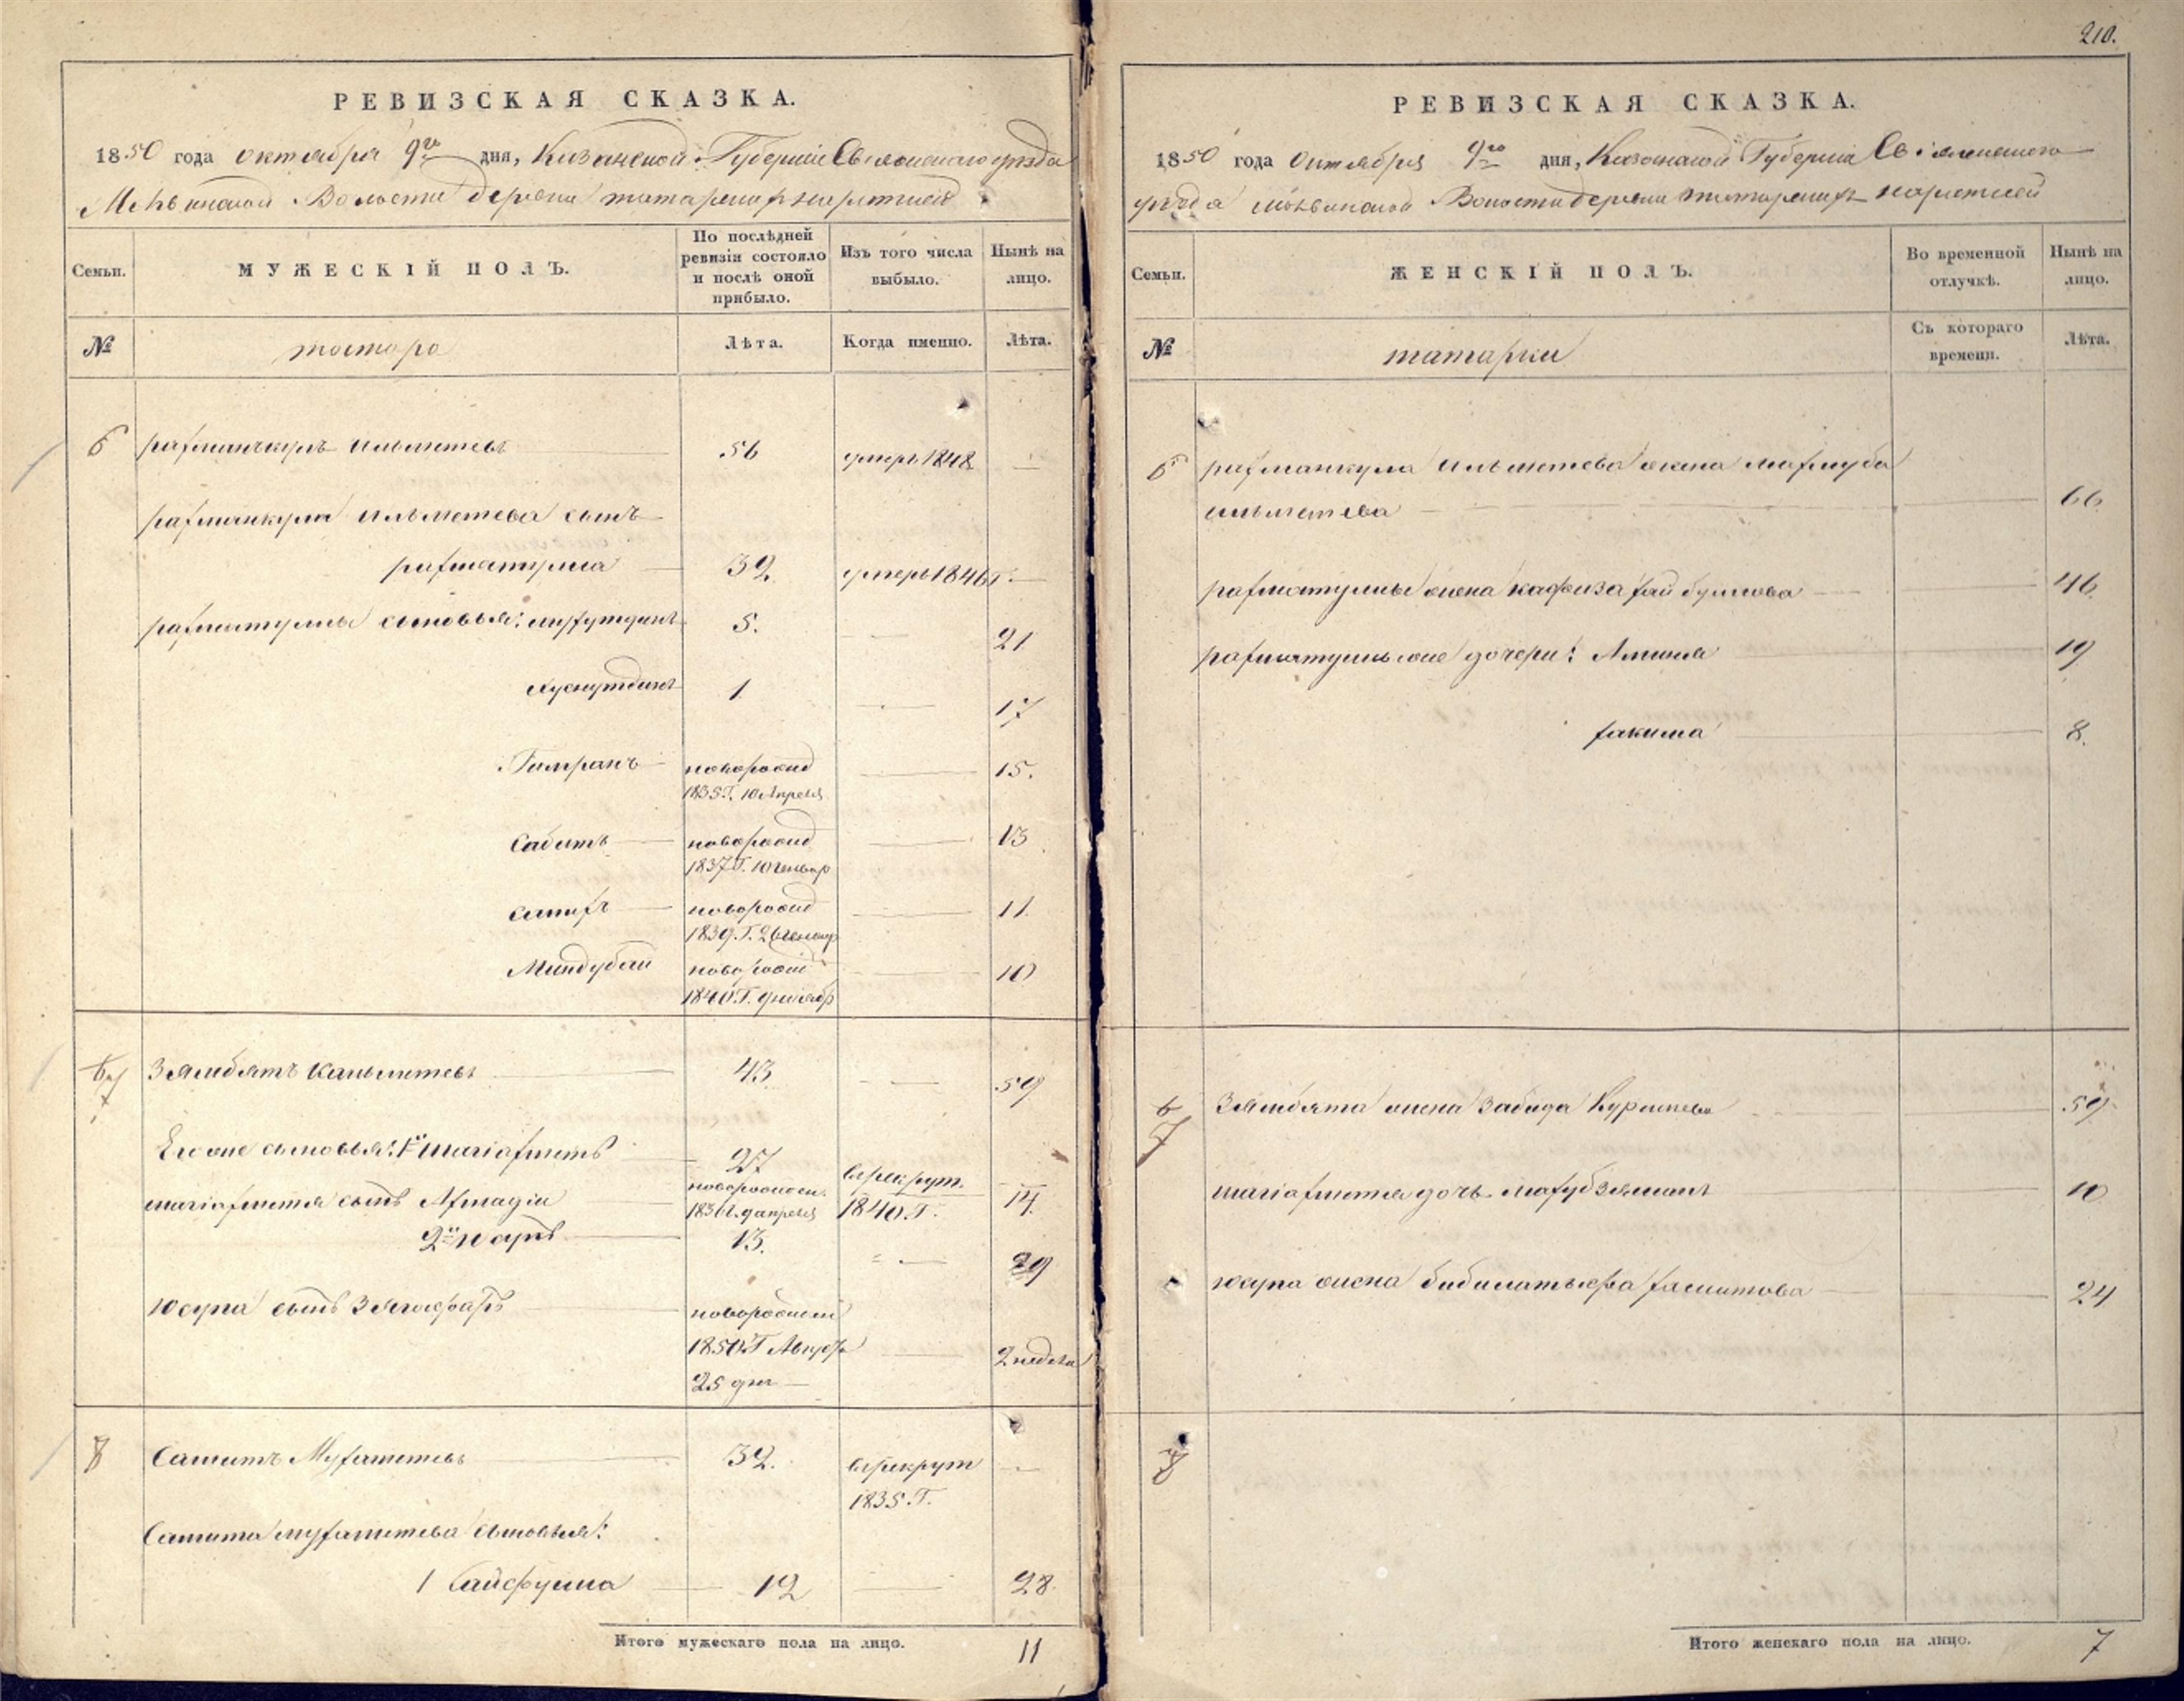 РЕВИЗСКАЯ СКАЗКА.
1850 года октября 9го дня, Казанской Губернiи Свiяжскаго уѣзда
Волости деревни татарских
Семьи.
МУЖЕСКIЙ ПОЛЪ.
По послѣдней ревизiи состояло и послѣ оной прибыло.
Изъ того числа выбыло.
Нынѣ на лицо.
№
татара
Лѣта.
Когда именно.
Лѣта.
6 рахманкулъ ильметевъ 56 умеръ 1848 —
рахманкула ильметева сынъ
рахматулла 32 умеръ 1846 г. —
рахматуллы сыновья: 5. — 21
Хуснутдинъ 1 — 17
Гимранъ новорожд 1835 Г. 10 Апреля — 15.
Сабитъ новорожд 1837 Г. 10 генвар — 13
новорожд 1839. Г. генвар — 11.
Миндубай новорожд 1840. Г. — 10
7 Зямбятъ Кальметевъ 43 — 59
Его же сыновья: 1й шагiахметъ 27 в рекрут. 1840. Г.
шагiахметя сынъ Ахмадiи новорожден. апреля 14.
2й юсупъ 13. — 29
юсупа сынъ новорожден 1850 Г Август 25 дня — 2 недели
8 Самитъ Мухаметевъ 32. в рекрут 1835. Г. —
Самита мухаметева сыновья:
1 Сайфулла 12 — 28.
Итого мужескаго пола на лицо. 11
210.
РЕВИЗСКАЯ СКАЗКА.
1850 года Октября 9го дня, Казанской Губернiи Свiяжскаго
уезда Волости деревни татарских
Семьи.
ЖЕНСКIЙ ПОЛЪ.
Во временной отлучкѣ.
Нынѣ на лицо.
№
татарки
Съ котораго времени.
Лѣта.
6 рахманкула ильметева жена махмуба
ильметева — 66
рахматуллы жена — 46
рахматуллы же дочери: Амина — 19
хакима — 8.
7 Зямбята жена Забида — 59
шагiахметя дочь — 10
юсупа жена — 24
8
Итого женскаго пола на лицо. 7